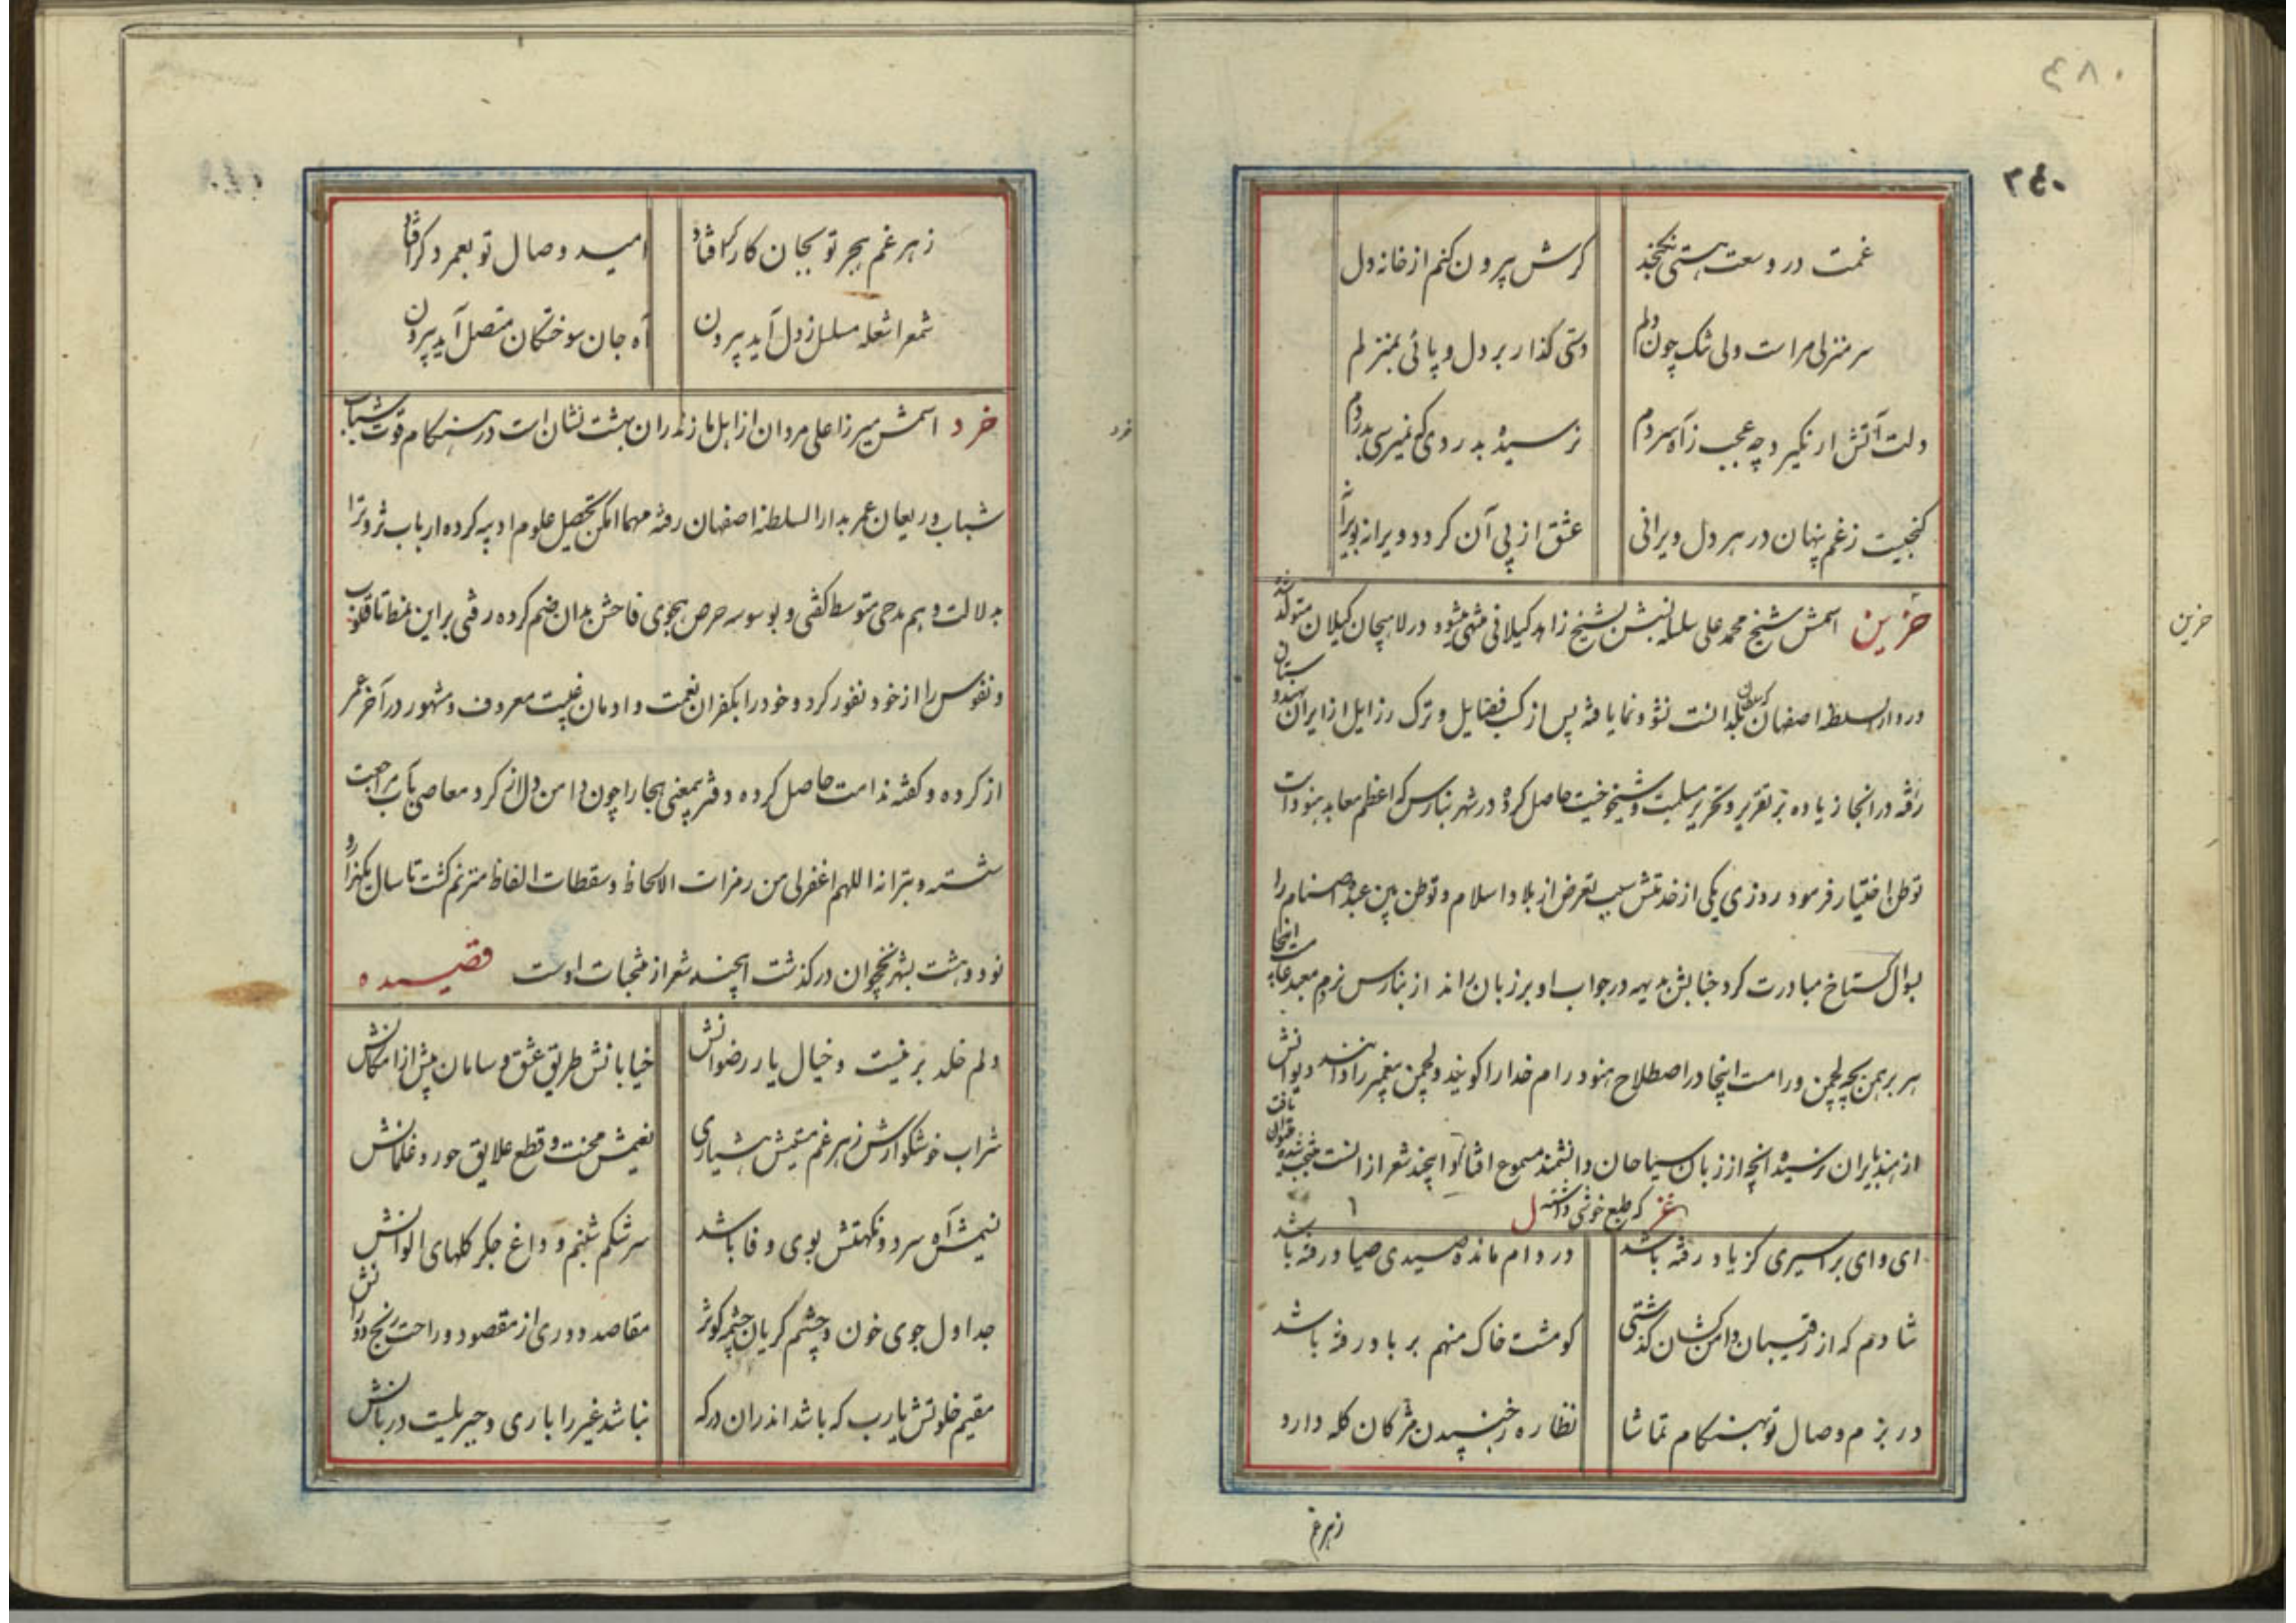 ۴۸۰
۲۴۰
غمت در وسعت هستی نکنجد کرش بیرون کنم از خانه دل
سر منزلی مراست ولی تنک چون دلم دستی کذار بر دل و پائی بمنزلم
دلت آتش ار نکیرد چه عجب ز آه سردم نرسیده بدردی که نمیرسی بدردم
کنجیست ز غم پنهان در هر دل ویرانی عشق از پی آن کردد ویرانه بویرانه
حزین
حزین اسمش شیخ محمد علی سلسله نسبش بشیخ زاهد کیلانی منتهی میشود در لاهیجان کیلان متولد شد
و در دار السلطنه اصفهان نشو و نما یافته پس از کسب فضایل و ترک رزایل از ایران بهندوستان
رفته در انجا زیاده بر تقریر و تحریر مسلمیت و شیخوخیت حاصل کرده در شهر بنارس که اعظم معابد هنود است
توطن اختیار فرمود روزی یکی از خدمتش سبب تعرض از بلاد اسلام و توطن بین عبده اصنام را
بسوال کستاخ مبادرت کرد جنابش بدیهه در جواب او بر زبان راند از بنارس نروم معبد عامست اینجا
هر برهمن بچه لچمن و رامست اینجا در اصطلاح هنود رام خدا را کویند و لچمن پیغمبر را دانند دیوانش
از هند بایران نرسیده انچه از زبان سیاحان دانشمند مسموع افتاد این چند شعر از انست
که طبع خوشی داشته غزل
ای وای بر اسیری کز یاد رفته باشد در دام مانده صیدی صیاد رفته باشد
شادم که از رقیبان دامن کشان کذشتی کو مشت خاک منهم بر باد رفته باشد
در بزم وصال تو بهنکام تماشا نظاره ز جنبیدن مژکان کله دارد
زهر غم
زهر غم هجر تو بجان کارکر افتاد امید وصال تو بعمر دکر افتاد
شمع را شعله مسلسل ز دل آید بیرون آه جان سوختکان متصل آید بیرون
خرد
خرد اسمش میرزا علی مردان از اهل مازندران بهشت نشان است در هنکام قوت شباب
شباب و ریعان عمر بدار السلطنه اصفهان رفته مهما امکن تحصیل علوم ادبیه کرده ارباب ثروترا
بدلالت وهم مدحی متوسط کفتی و بوسوسه حرص هجوی فاحش بدان ضم کرده رفتی بر این نمط تا قلوب
و نفوس را از خود نفور کرد و خود را بکفران نعمت و ادمان غیبت معروف و مشهور در آخر عمر
از کرده و کفته ندامت حاصل کرده دفتر بیمعنی هجا را چون دامن دل از کرد معاصی بآب مراجعت
شسته و بترانه اللهم اغفر لی من رمزات الالحاظ و سقطات الالفاظ مترنم کشت تا سال یکهزار و
نود و هشت بشهر نخچوان درکذشت این چند شعر از منتخبات اوست قصیده
دلم خلد برینیست و خیال یار رضوانش خیابانش طریق عشق و سامان بیش از امکانش
شراب خوشکوارش زهر غم مستیش هشیاری نعیمش محنت و قطع علایق حور و غلمانش
نسیمش آه سرد و نکهتش بوی وفا باشد سرشکم شبنم و داغ جکر کلهای الوانش
جداول جوی خون و چشم کریان چشمه کوثر مقاصد دوری از مقصود و راحت رنج دورانش
مقیم خلوتش یارب که باشد اندران درکه نباشد غیر را باری و جبریلیست دربانش